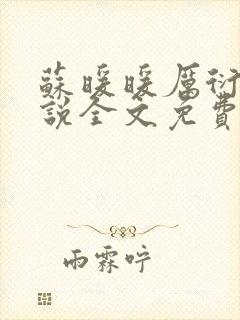 蘇暖暖厲衍
說全文免費
雨霖咛